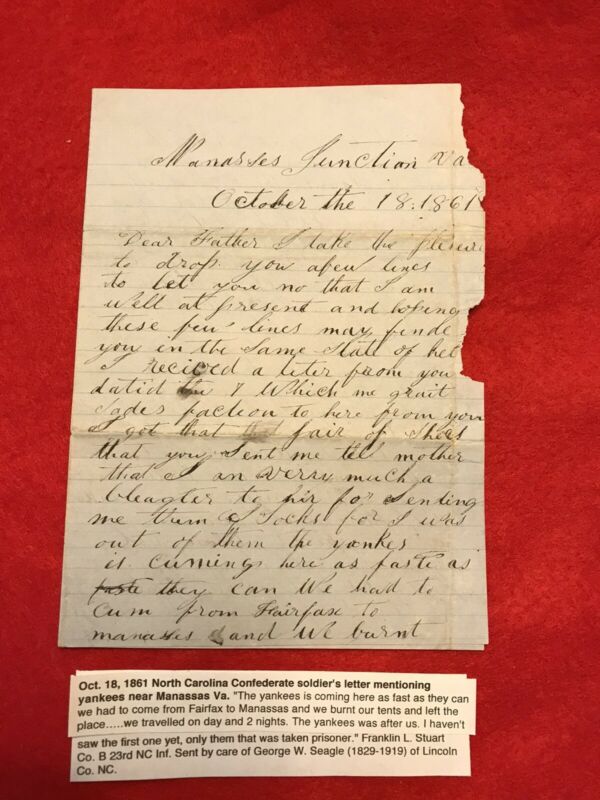 Manasses Junction Va
October the 18. 1861
Dear Father I take the plesure
to drop you afew lines
to let you no that I am
well at present and hoping
these few lines may finde
you in the Same State of hel
I recived a leter from you
datid the 7 Which me grait
Sades faction to here from you
I got that pair of Shoes
that you Sent me tel mother
that I an verry much a
bleagter to hir for Senting
me them Socks for I was
out of them the yankes
is cumings here as faste as
faste they can We had to
cum from Fairfax to
manasses and We burnt
Oct. 18, 1861 North Carolina Confederate soldier's letter mentioning
yankees near Manassas Va. "The yankees is coming here as fast as they can
we had to come from Fairfax to Manassas and we burnt our tents and left the
place.....we travelled on day and 2 nights. The yankees was after us. I haven't
saw the first one yet, only them that was taken prisoner." Franklin L. Stuart
Co. B 23rd NC Inf. Sent by care of George W. Seagle (1829-1919) of Lincoln
Co. NC.